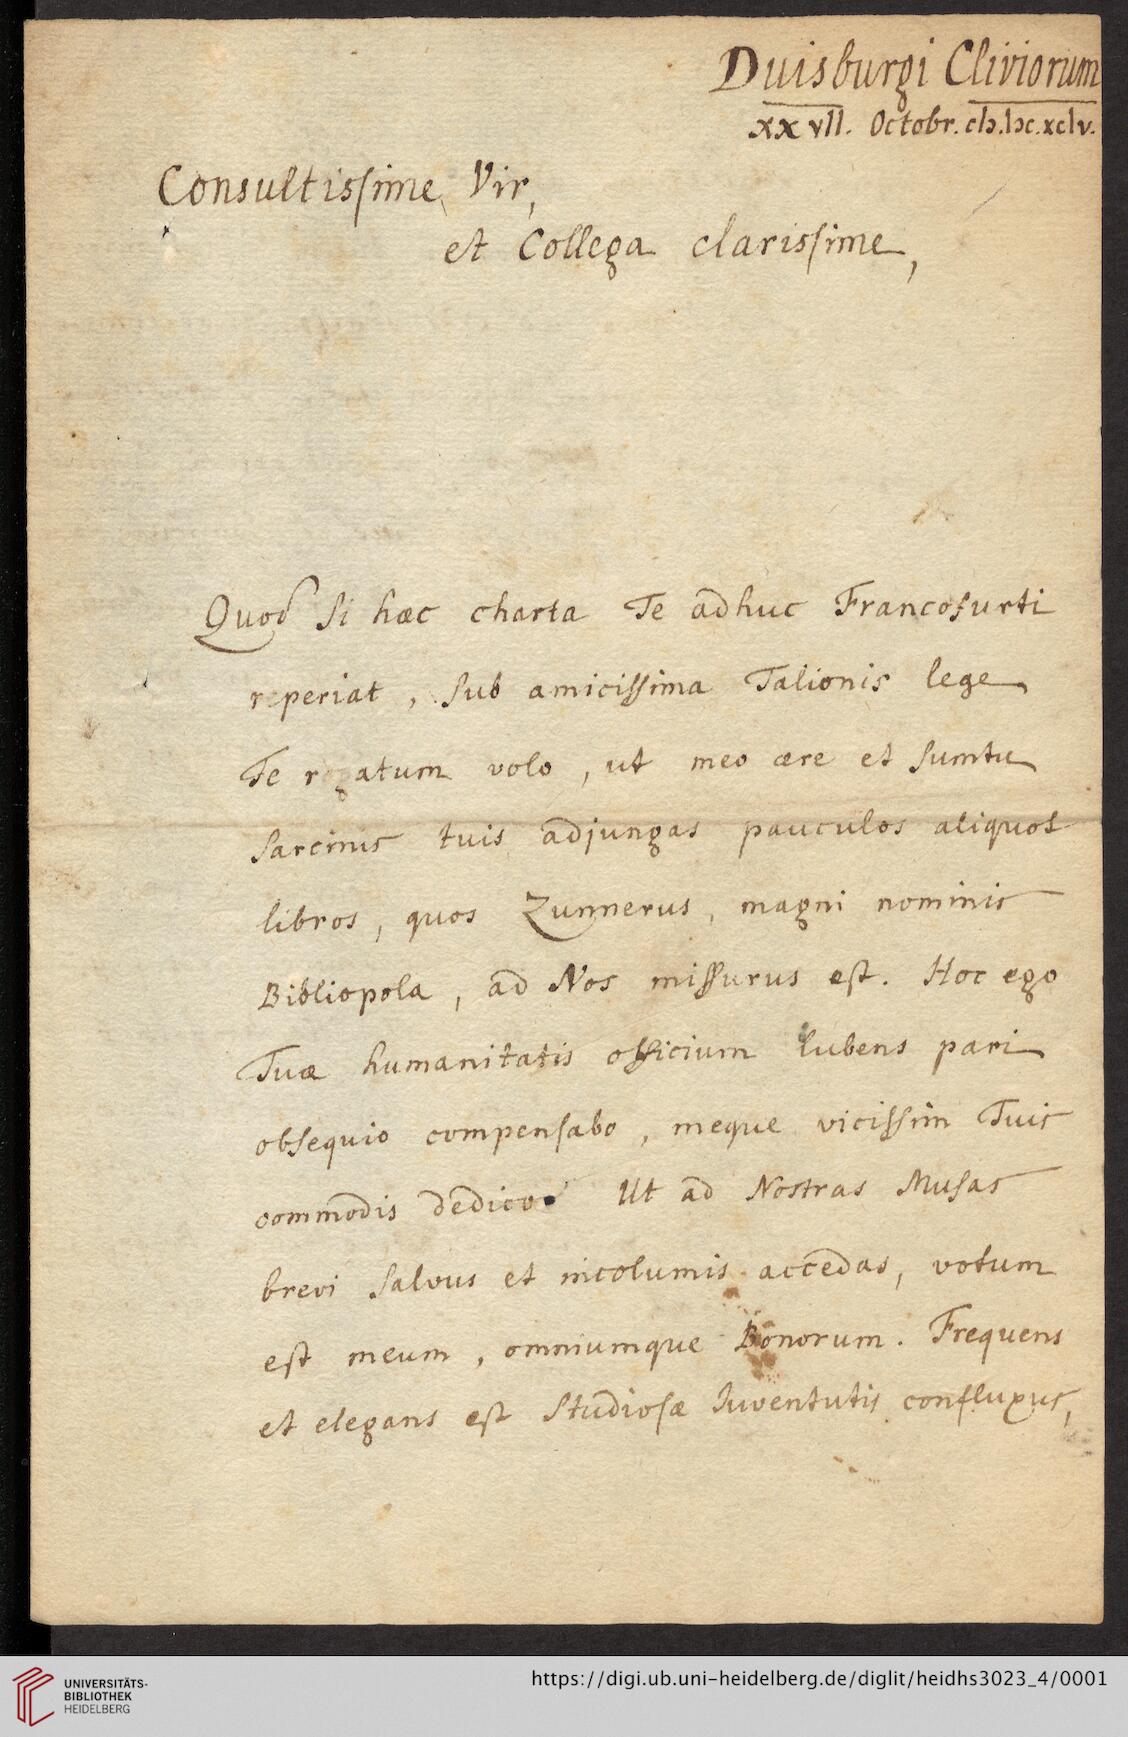 Duisburgi Cliviorum
xxvII. Octobr. cIɔ.Iɔc.xcIv.
Consultissime Vir,
et Collega clarissime,
Quod si hæc charta Te adhuc Francofurti
reperiat, sub amicissima Talionis lege
Te rogatum volo, ut meo ære et sumtu
sarcinis tuis adjungas pauculos aliquot
libros, quos Zunnerus, magni nominis
Bibliopola, ad Nos missurus est. Hoc ego
Tuæ humanitatis officium lubens pari
obsequio compensabo, meque vicissim Tuis
commodis dedico. Ut ad Nostras Musas
brevi salvus et incolumis accedas, votum
est meum, omniumque Bonorum. Frequens
et elegans est Studiosæ Iuventutis confluxus,
UNIVERSITÄTS-
BIBLIOTHEK
HEIDELBERG
https://digi.ub.uni-heidelberg.de/diglit/heidhs3023_4/0001